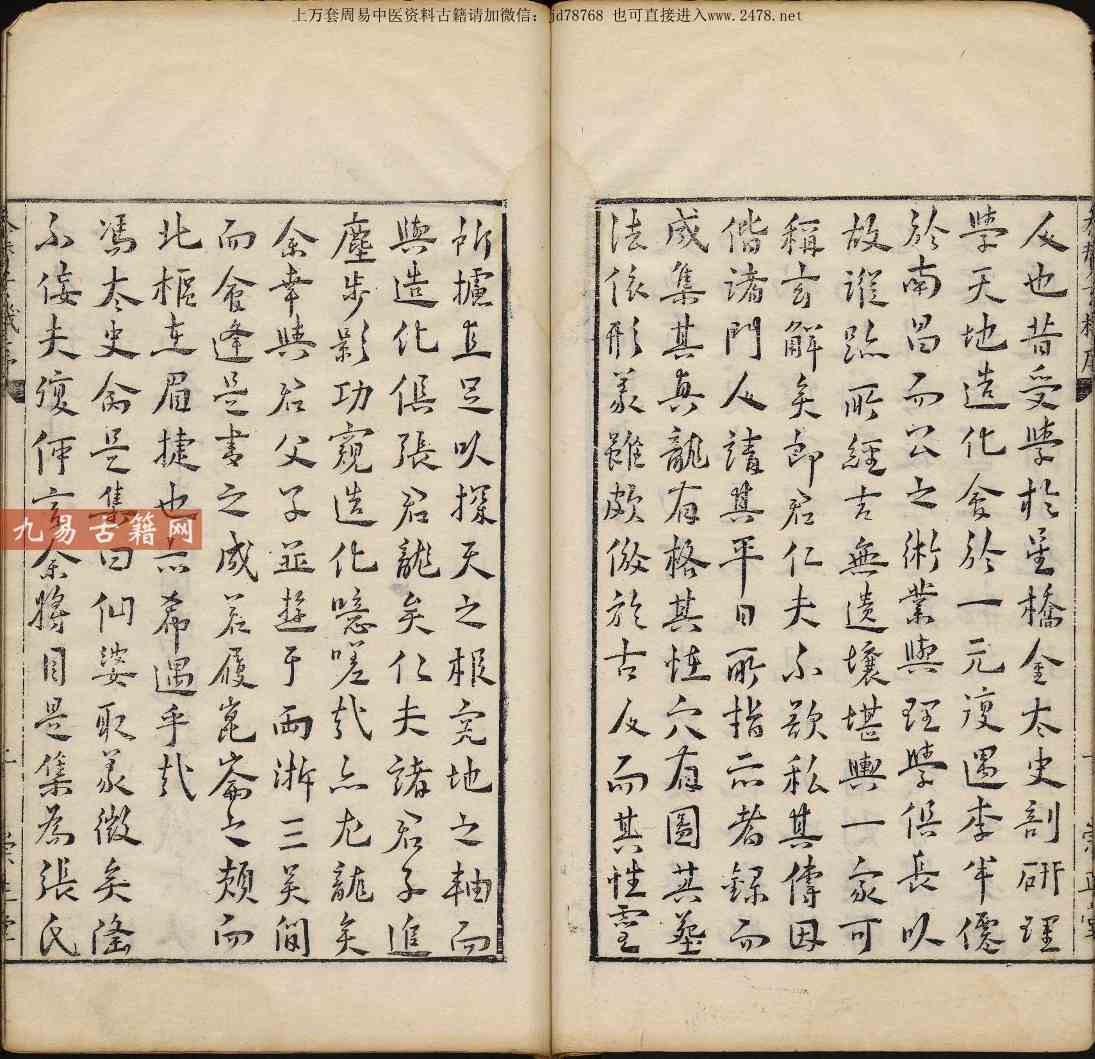 上万套周易中医资料古籍请加微信：jd78768 也可直接进入www.2478.net
人也昔受學於星橋金太史剖研理
學天地造化會於一元復遇李半僊
於南昌而公之術業與理學俱長以
故蹤跡所經古無遺壤堪輿一家可
稱玄解矣郎君仁夫不欲私其傳因
偕諸門人請其平日所指示者錄而
成集其真龍有格其怪穴有圖其葬
法依形義雖頗倣於古人而其性靈
所攄直足以探天之根究地之軸而
與造化俱張君龍矣仁夫諸君子進
塵步影功窺造化噫嗟哉亦尤龍矣
余幸與君父子並遊于兩浙三吳間
而會逢是書之成若履崑崙之巔而
北樞在眉捷也亦希遇乎哉
馮太史命是集曰仙婆取義微矣隆
不佞夫復何言余將目是集為張氏
九易古籍网